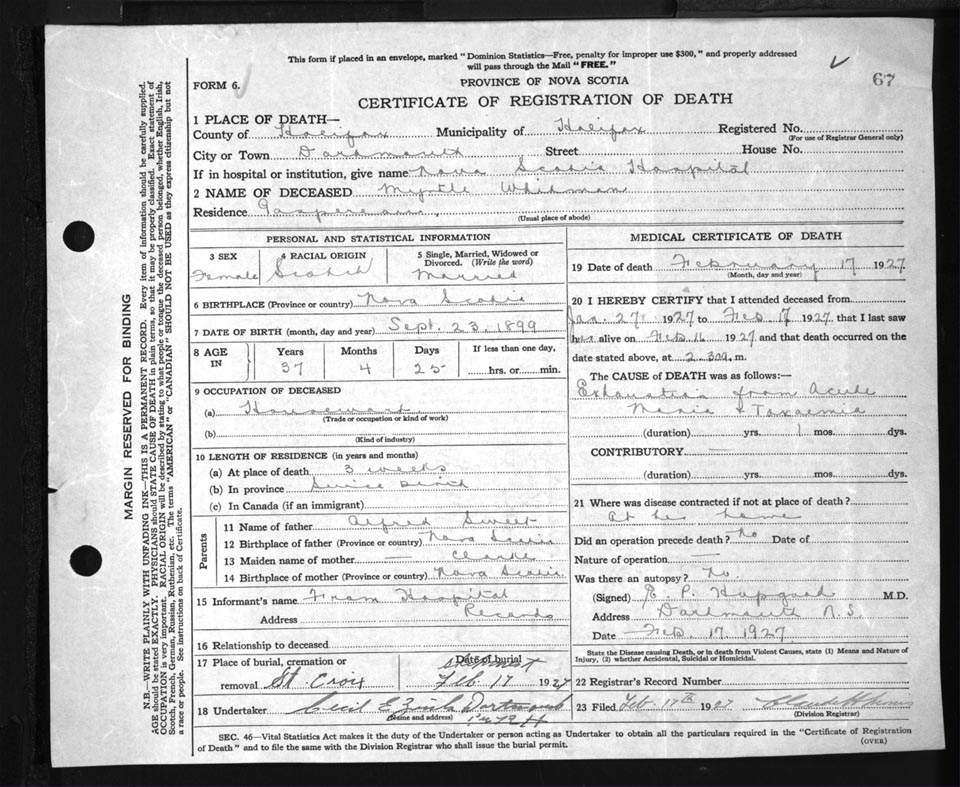 This form if placed in an envelope, marked "Dominion Statistics—Free, penalty for improper use $300," and properly addressed
will pass through the Mail "FREE."
67
FORM 6.
PROVINCE OF NOVA SCOTIA
CERTIFICATE OF REGISTRATION OF DEATH
1 PLACE OF DEATH—
County of Halifax Municipality of Halifax Registered No.
(For use of Registrar General only)
City or Town Dartmouth Street House No.
If in hospital or institution, give name Nova Scotia Hospital
2 NAME OF DECEASED Myrtle Whitman
Residence Gaspereau
(Usual place of abode)
PERSONAL AND STATISTICAL INFORMATION
3 SEX 4 RACIAL ORIGIN 5 Single, Married, Widowed or
Divorced. (Write the word)
Female Scotch Married
6 BIRTHPLACE (Province or country) Nova Scotia
7 DATE OF BIRTH (month, day and year) Sept. 23. 1899
8 AGE IN Years Months Days If less than one day,
37 4 25 hrs. or min.
9 OCCUPATION OF DECEASED
(a) Housework
(Trade or occupation or kind of work)
(b)
(Kind of industry)
10 LENGTH OF RESIDENCE (in years and months)
(a) At place of death 3 weeks
(b) In province Since birth
(c) In Canada (if an immigrant)
Parents
11 Name of father Alfred Sweet
12 Birthplace of father (Province or country) Nova Scotia
13 Maiden name of mother Clarke
14 Birthplace of mother (Province or country) Nova Scotia
15 Informant's name From Hospital
Address Records
16 Relationship to deceased
17 Place of burial, cremation or Date of burial
shipment
removal St. Croix Feb. 17 1927
18 Undertaker Cecil E. Dartmouth
(Name and address)
MEDICAL CERTIFICATE OF DEATH
19 Date of death February 17 1927
(Month, day and year)
20 I HEREBY CERTIFY that I attended deceased from
Jan. 27 1927 to Feb 17 1927 that I last saw
her alive on Feb 16 1927 and that death occurred on the
date stated above, at 2.30 a. m.
The CAUSE of DEATH was as follows:—
Exhaustion from Acute
Mania & Toxaemia
(duration) yrs. 1 mos. dys.
CONTRIBUTORY. —
(duration) yrs. mos. dys.
21 Where was disease contracted if not at place of death?
At her home
Did an operation precede death? No Date of
Nature of operation —
Was there an autopsy? No.
(Signed) E. P. Hapgood M.D.
Address Dartmouth N.S
Date Feb. 17. 1927
State the Disease causing Death, or in death from Violent Causes, state (1) Means and Nature of
Injury, (2) whether Accidental, Suicidal or Homicidal.
22 Registrar's Record Number
23 Filed Feb 17th 1927
(Division Registrar)
SEC. 46—Vital Statistics Act makes it the duty of the Undertaker or person acting as Undertaker to obtain all the particulars required in the "Certificate of Registration
of Death" and to file the same with the Division Registrar who shall issue the burial permit.
(OVER)
MARGIN RESERVED FOR BINDING
N.B.—WRITE PLAINLY WITH UNFADING INK—THIS IS A PERMANENT RECORD. Every item of information should be carefully supplied.
AGE should be stated EXACTLY. PHYSICIANS should STATE CAUSE OF DEATH in plain terms, so that it may be properly classified. Exact statement of
OCCUPATION is very important. RACIAL ORIGIN will be described by stating to what people or tongue the deceased person belonged, whether English, Irish,
Scotch, French, German, Russian, Ruthenian, etc. The terms "AMERICAN" or "CANADIAN" SHOULD NOT BE USED as they express citizenship but not
a race or people. See instructions on back of Certificate.